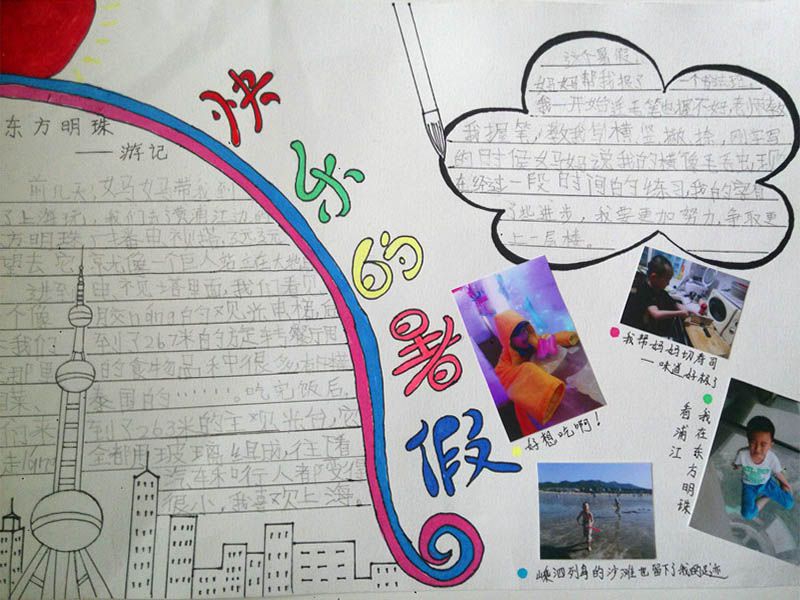 快乐的暑假
东方明珠
——游记
前几天,女马女马带我到
了上海玩,我们去漂浦江边的
方明珠广播电视塔,远远
望去,它京尤像一个巨人站立在大地
进到电视塔里面,我们看见
不像
的观光电梯
我们
到了267米的旋转餐厅里
那里的食物品种很多
泰国的……。吃完饭后,
们来到了263米的主观光台,它
全部用玻璃组成,往下看
汽车和行人者变得
很小,我喜欢上海。
这个暑假,
妈妈帮我报了一个书法班,
我一开始连毛笔也握不好,老师教
我握笔,教我写横、竖、撇、捺,刚学写
的时候妈妈说我的横像毛毛虫,现
在经过一段时间的练习,我的字有
了些进步,我要更加努力,争取更
上一层楼。
好想吃啊!
我帮妈妈切寿司
味道好极了
我在东方明珠
看浦江
嵊泗列岛的沙滩也留下了我的足迹